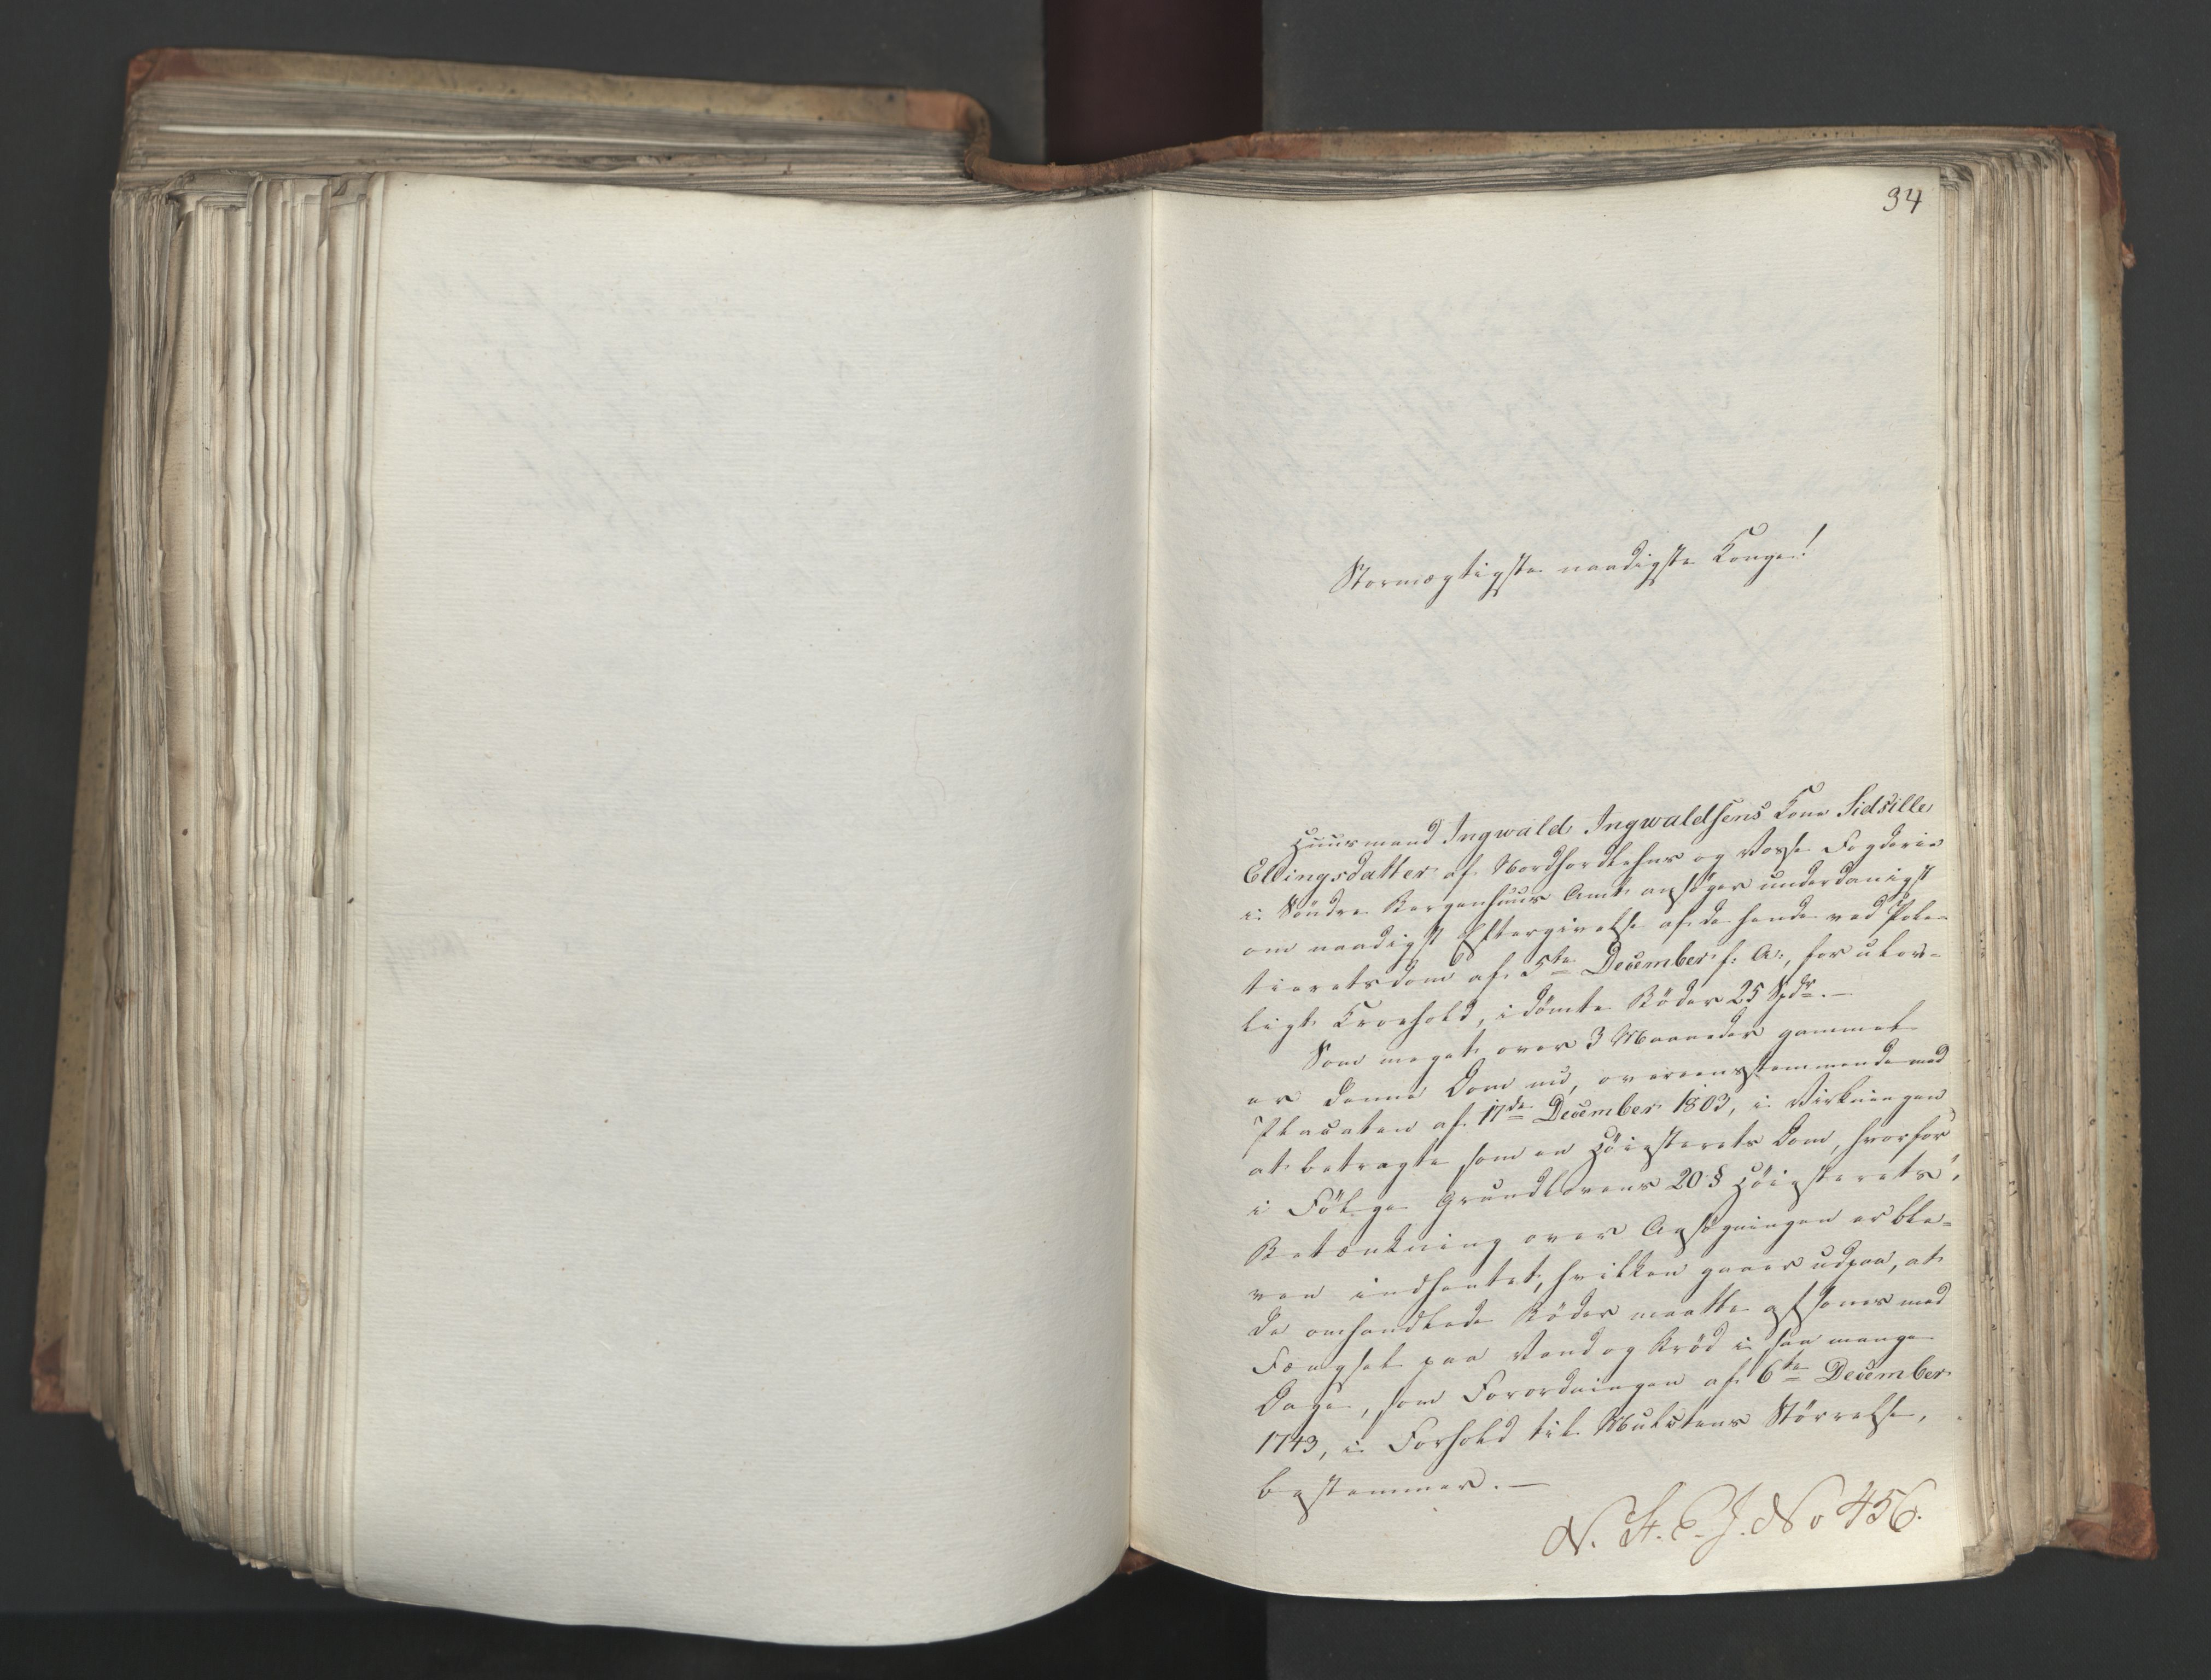 94
Stormægtigste naadigste Konge!
Huusmand Ingwald Ingwaldsens Kone Sidsille
Ellingsdatter af Nordhordlehns og Vosse Fogderie
i Söndre Bergenhuus Amt ansöger underdanigst
om naadigst Eftergivelse af de hende ved Poli-
tieretsdom af 5te December f: A:, for ulov-
ligt Kroehold, idömte Böder 25 Spdr. —
Som meget over 3 Maaneder gammel
er denne Dom nu, overeensstemmende med
Placaten af 17de December 1803, i Virkningen
at betragte som en Höiesterets Dom, hvorfor
i Fölge Grundlovens 20 § Höiesterets
Betænkning over Ansögningen er ble-
ven indhentet, hvilken gaaer ud paa, at
de omhandlede Böder maatte afsones med
Fængsel paa Vand og Bröd i saa mange
Dage, som Forordningen af 6te December
1743, i Forhold til Mulctens Störrelse,
bestemmer. —
N. St. E. J. No 456.